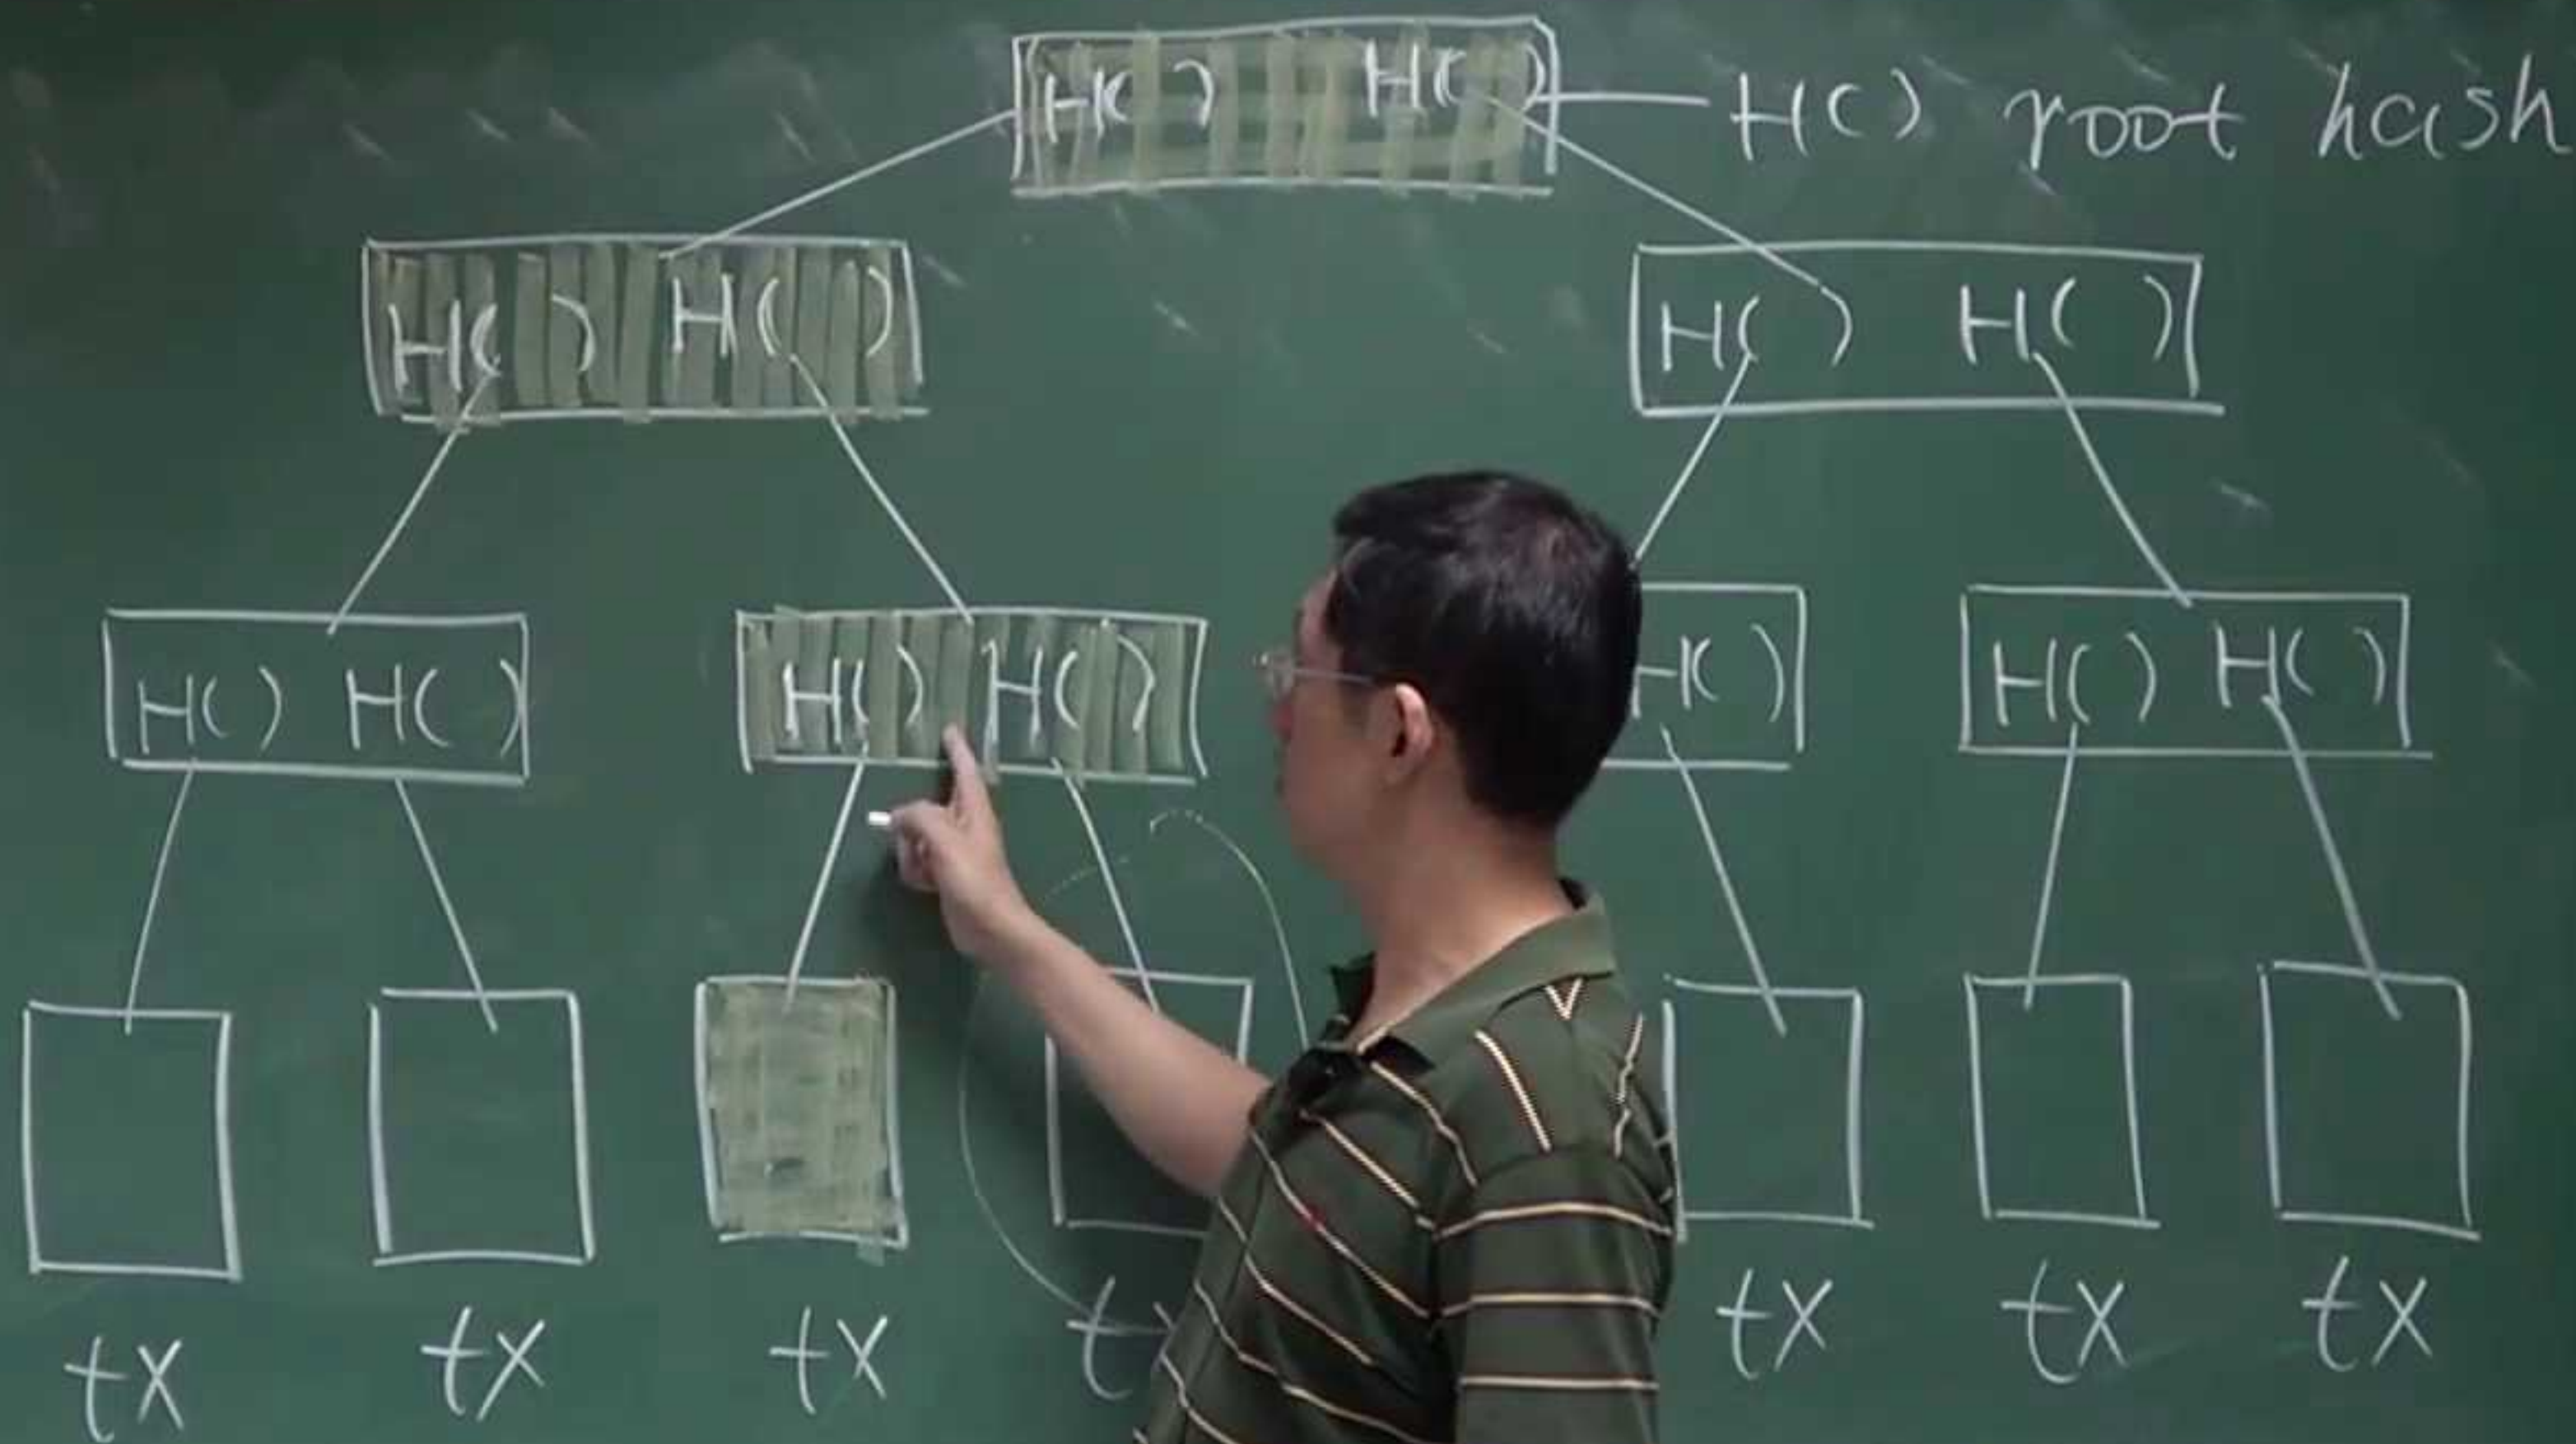 H( ) H( ) H( ) root hash
H( ) H( ) H( ) H( )
H( ) H( ) H( ) H( ) H( ) H( ) H( )
tx tx tx t tx tx tx